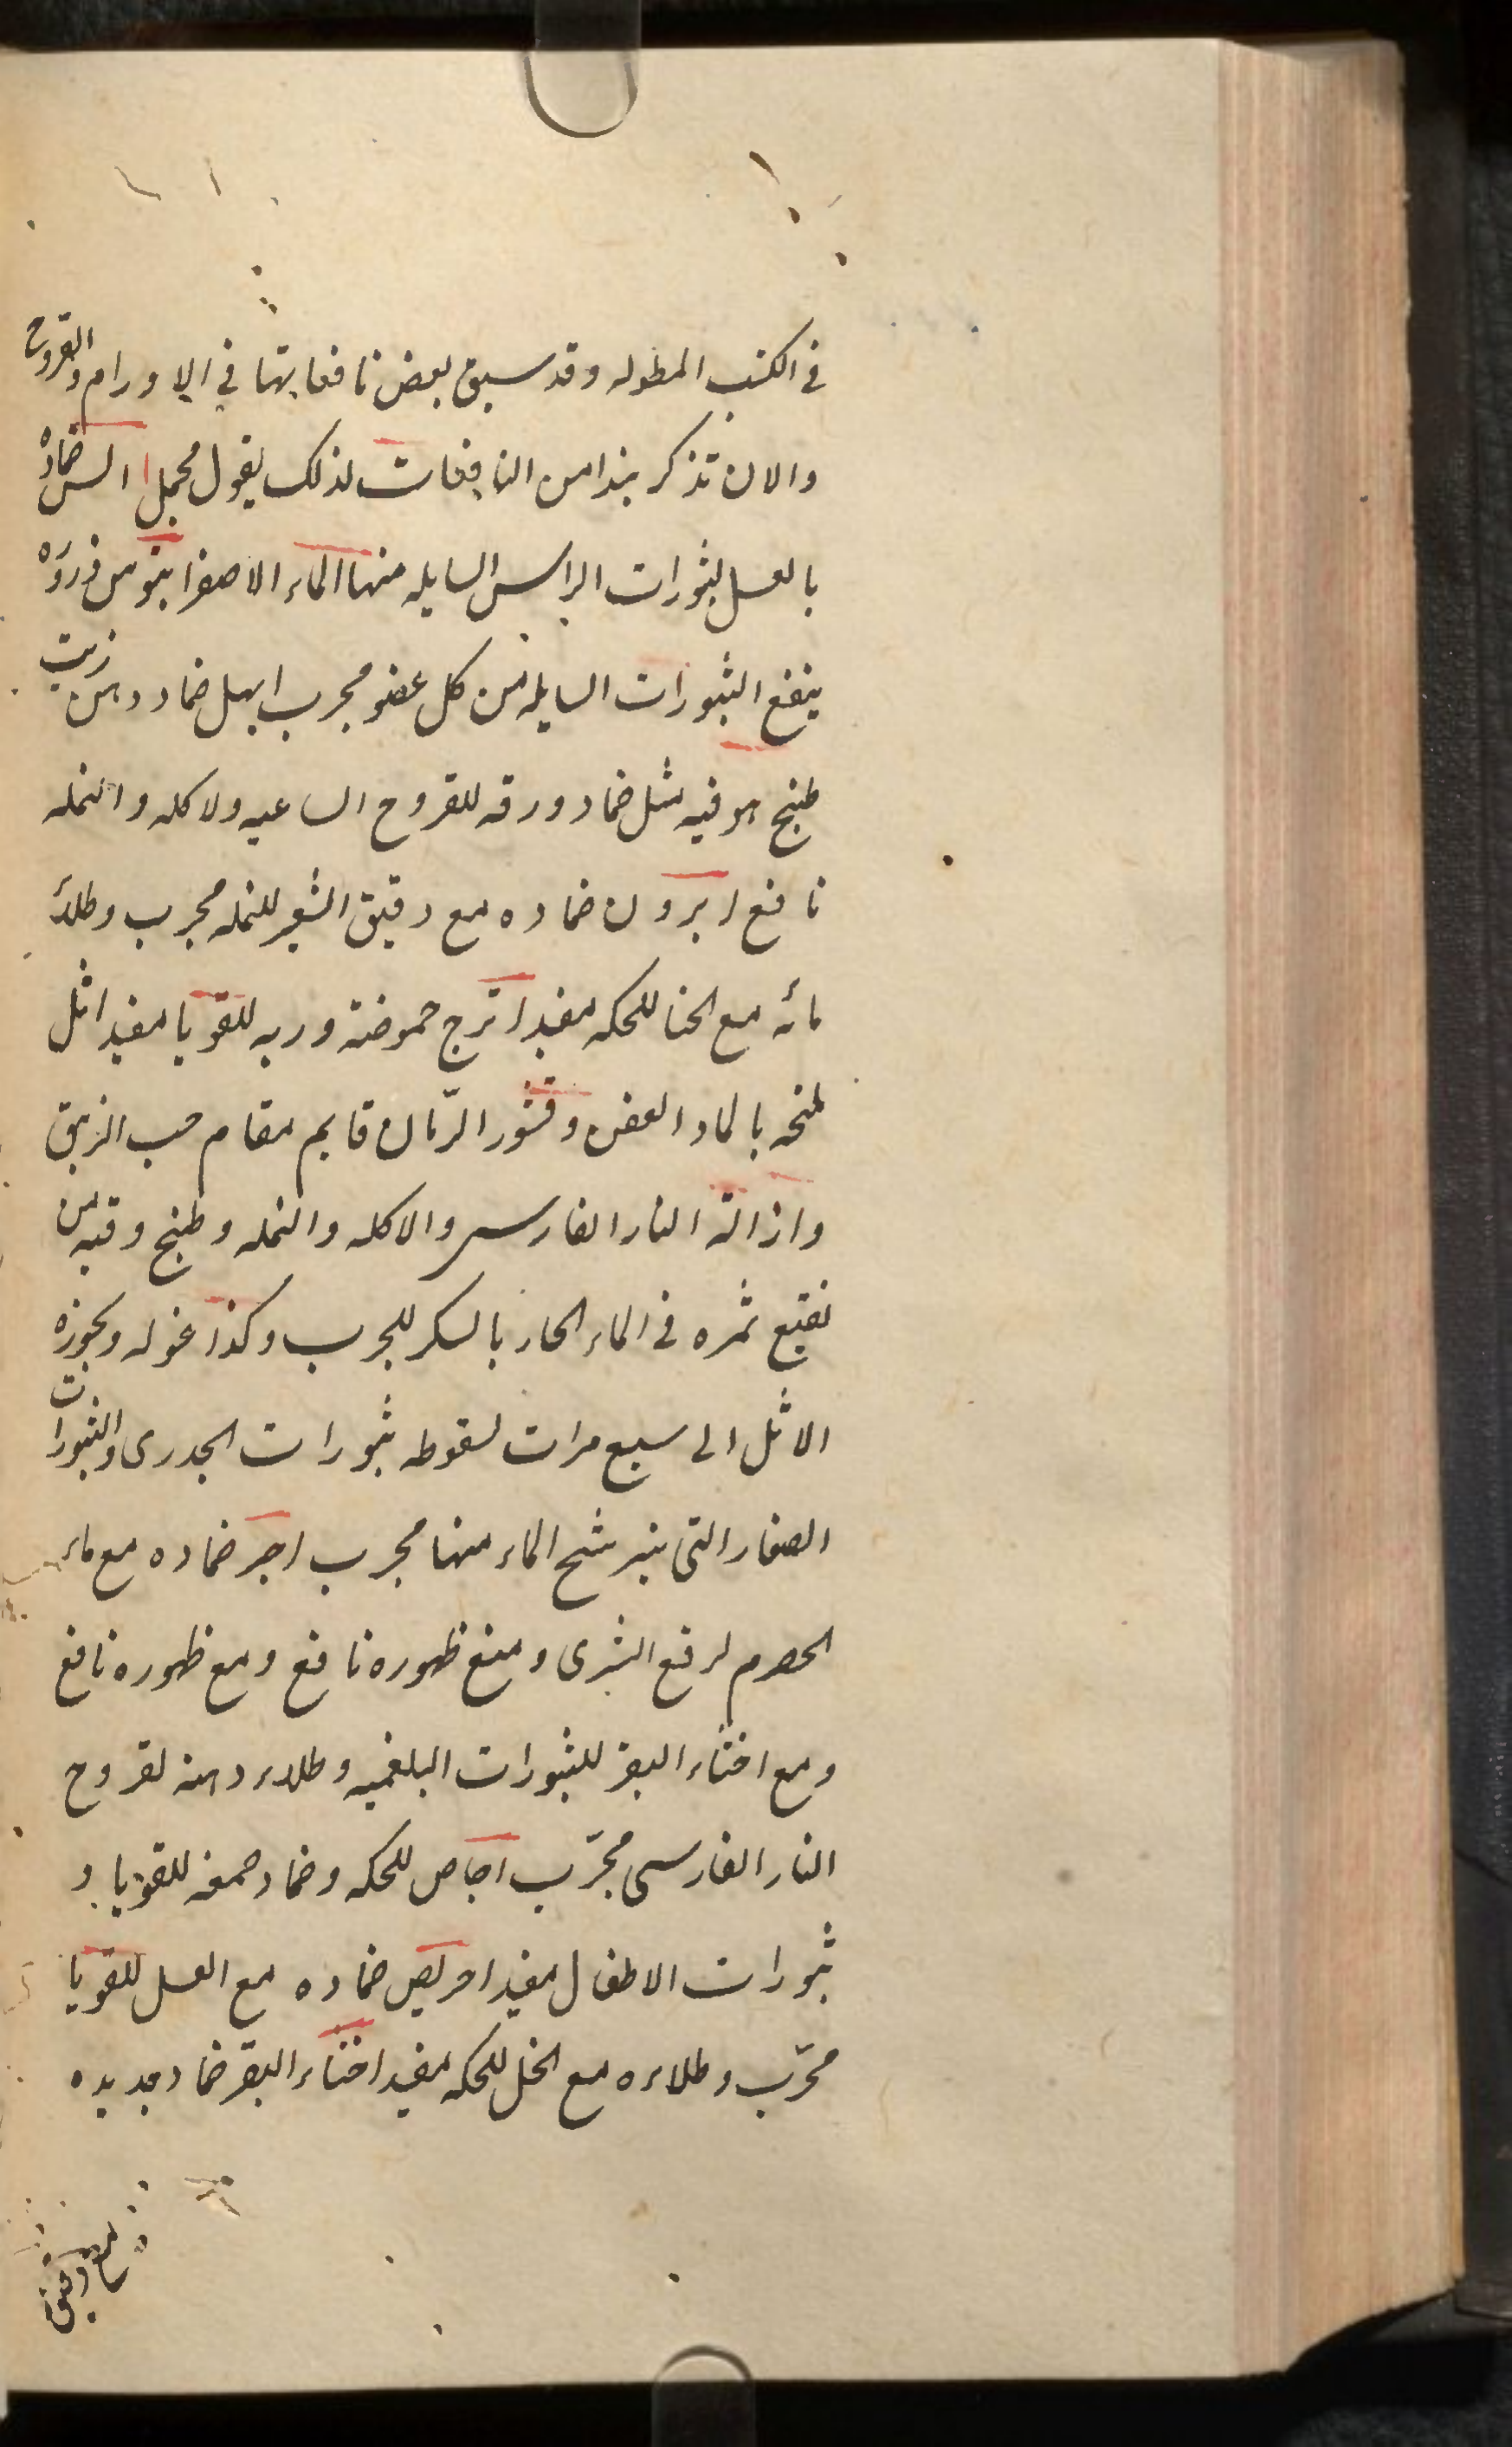 في الكتب المطوله وقد سبق بعض نافعاتها في الاورام والقروح
والان نذكر نبذا من النافعات لذلك بقول مجمل اس ضماده
بالعسل لبثورات الراس السايله منها الماء الاصفر ابنوس ذروره
ينفع البثورات السايله من كل عضو مجرب ابهل ضماد دهن زيت
طبخ هو فيه مثل ضماد ورقه للقروح الساعيه ولاكله والنمله
نافع ابرون ضماده مع دقيق الشعير للنمله مجرب وطلاء
مائه مع الحنا للحكه مفيد اترج حموضته وربه للقوبا مفيد اثل
بالماد العفص وقشور الرّمان قايم مقام حب الزيبق
وازالة النار الفارسي والاكله والنمله وطبخ وقيه من
نقيع ثمره في الماء الحار بالسكر للجرب وكذا غوله وبخوره
الاثل الى سبع مرات لسقوطه بثورات الجدرى والبثورات
الصغار التى يترشح الماء منها مجرب اجر ضماده مع ماء
الحصرم لرفع الشرى ومنع ظهوره نافع ومع ظهوره نافع
ومع اخثاء البقر للبثورات البلغميه وطلاء دهنه لقروح
النار الفارسى مجرّب اجاص للحكه وضماد صمغه للقوبا و
بثورات الاطفال مفيد احريض ضماده مع العسل للقوبا
مجرّب وطلاءه مع الخل للحكه مفيد اخثاء البقر ضماد جديده
مع دقيق